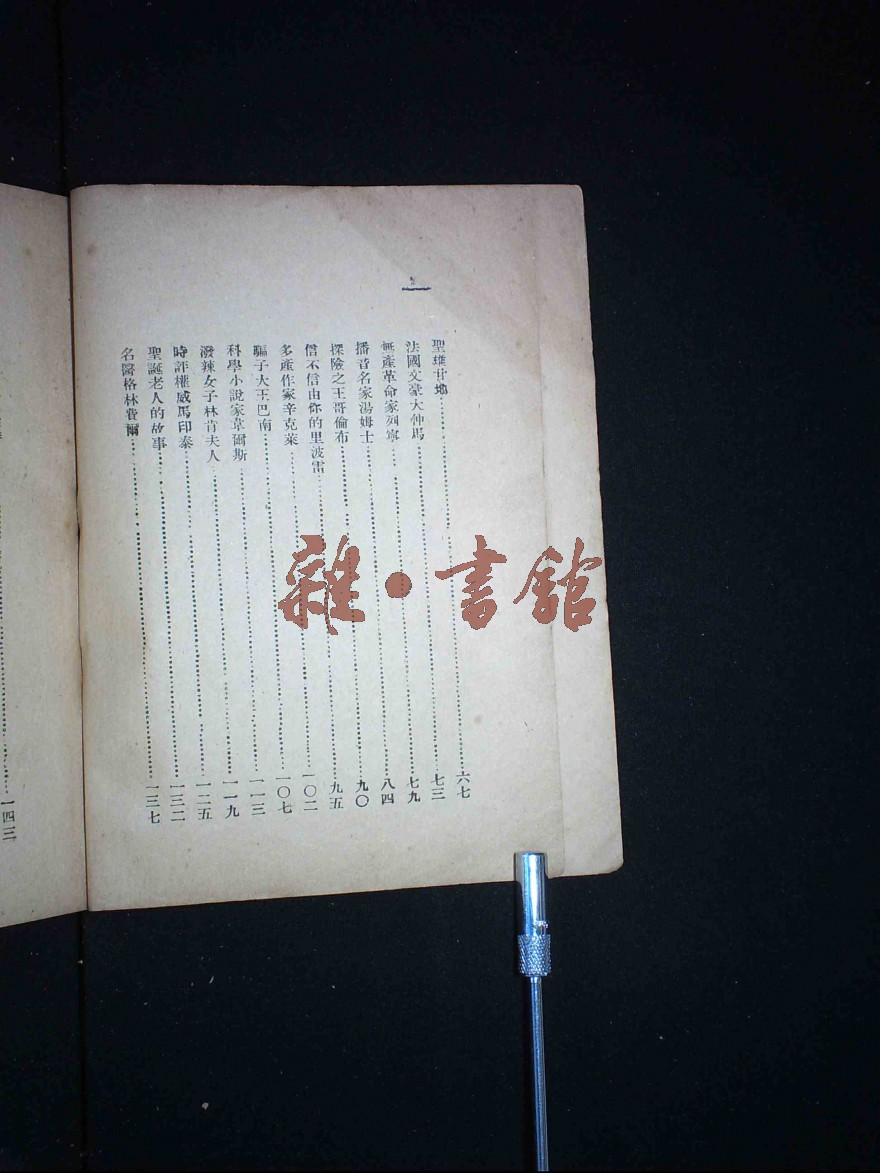 聖雄甘地……六七
法國文豪大仲馬……七三
無產革命家列寧……七九
播音名家湯姆士……八四
探險之王哥倫布……九〇
信不信由你的里波雷……九五
多產作家辛克萊……一〇二
騙子大王巴南……一〇七
科學小說家韋爾斯……一一三
潑辣女子林肯夫人……一一九
時評權威馬印泰……一二五
聖誕老人的故事……一三二
名醫格林費爾……一三七
……一四三
雜·書館